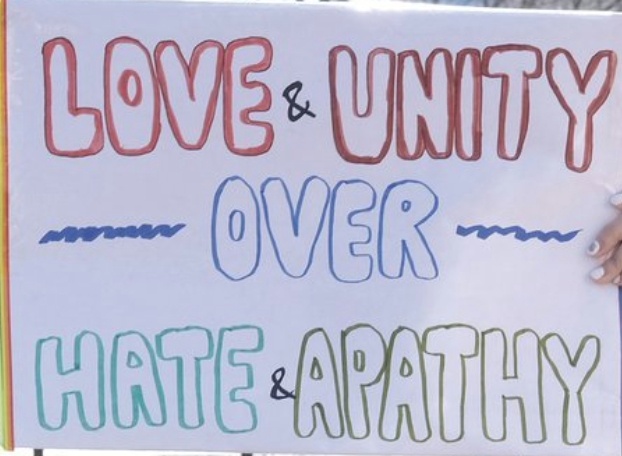 LOVE & UNITY
OVER
HATE & APATHY